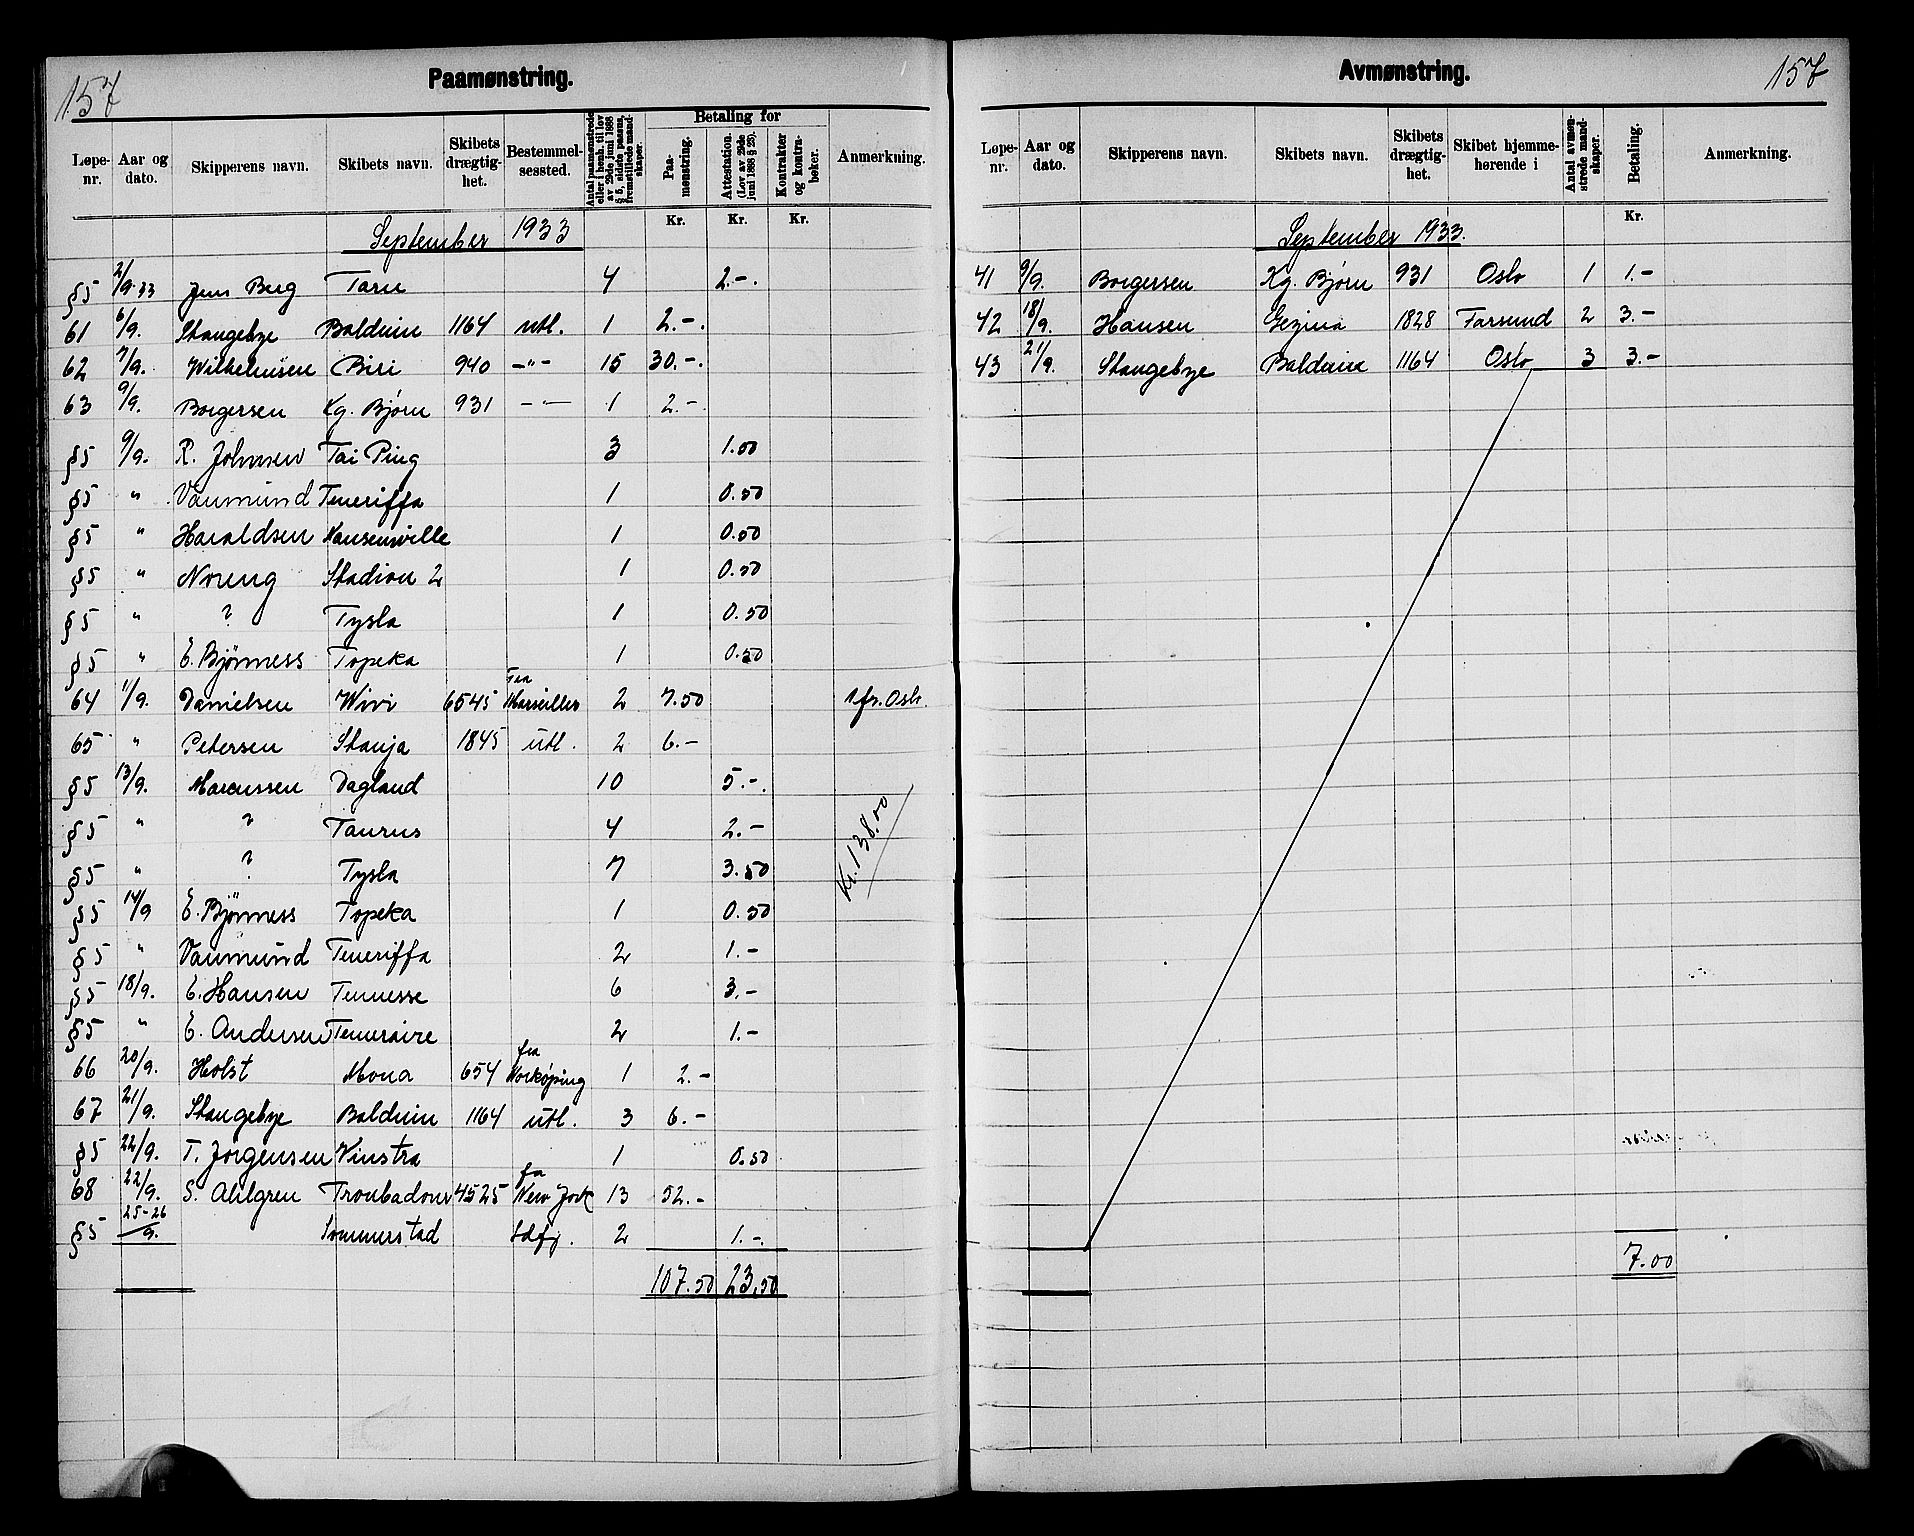 157
Paamønstring.
Løpe-nr. Aar og dato. Skipperens navn. Skibets navn. Skibets drægtig-het. Bestemmel-sessted. Antal paamønstrede eller i henh. til lov av 29de juni 1888 § 5, sidste passus, fremstillede mand-skaper. Betaling for Paa-mønstring. Attestation. (Lov av 29de juni 1888 § 25). Kontrakter og kontra-bøker. Anmerkning.
Kr. Kr. Kr.
September 1933
§5 2/9.33 Jens Berg Taru 4 2.-.
61 6/9. Stangebye Balduin 1164 utl. 1 2.-.
62 7/9. Wilhelmsen Biri 940 -"- 15 30.-.
63 9/9. Borgersen Kg. Bjørn 931 -"- 1 2.-
§5 9/9. R. Johnsen Tai Ping 3 1.00
§5 " Vanmund Teneriffa 1 0.50
§5 " Haraldsen Hansenville 1 0.50
§5 " Noreng Stadion 2 1 0.50
§5 " ? Tysla 1 0.50
§5 " E. Bjönness Topeka 1 0.50
64 11/9. Danielsen Wivi 6545 Fra Marseilles 2 7.50 1 fr. Oslo.
65 " Petersen Stanja 1845 utl. 2 6.-
§5 13/9. Marcussen Dagland 10 5.-.
§5 " ? Taurus 4 2.-
§5 " ? Tysla 7 3.50
Kr. 138.00
§5 14/9 E. Bjönness Topeka 1 0.50
§5 " Vanmund Teneriffa 2 1.-
§5 18/9. E. Hansen Tennesse 6 3.-
§5 " E. Andersen Temeraire 2 1.-
66 20/9. Holst Mona 654 fra Norkøping 1 2.-
67 21/9. Stangebye Balduin 1164 utl. 3 6.-
§5 22/9. T. Jørgensen Vinstra 1 0.50
68 22/9. S. Ahlgren Troubadour 4525 fra New York 13 52.-
§5 25-26/9. Sommerstad Sdfj. 2 1.-.
107.50 23,50
Avmønstring.
157
Løpe-nr. Aar og dato. Skipperens navn. Skibets navn. Skibets drægtig-het. Skibet hjemme-hørende i Antal avmøn-strede mand-skaper. Betaling. Anmerkning.
Kr.
September 1933.
41 9/9. Borgersen Kg. Bjørn 931 Oslo 1 1.-
42 18/9. Hansen Gezina 1828 Farsund 2 3.-
43 21/9. Stangebye Balduin 1164 Oslo 3 3.-
7.00